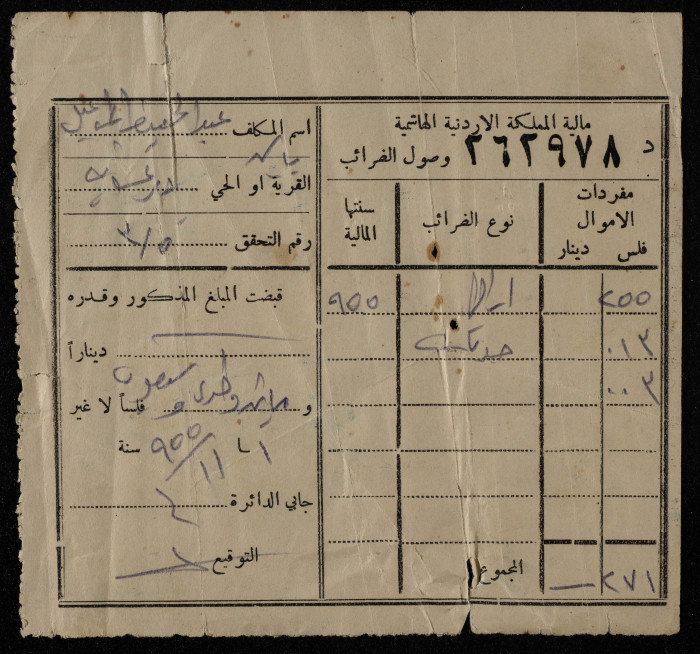 مالية المملكة الاردنية الهاشمية
د ٢٦٢٩٧٨ وصول الضرائب
مفردات الاموال
فلس دينار
نوع الضرائب
سنتها المالية
٢٥٥ ٩٥٥
٠١٣
٠٠٣
المجموع ٢٧١
اسم المكلف عبد
القرية او الحي
رقم التحقق ٣/٥
قبضت المبلغ المذكور وقدره
ديناراً
و فلساً لا غير
١ / ١١ / ٩٥٥ سنة
جابي الدائرة
التوقيع